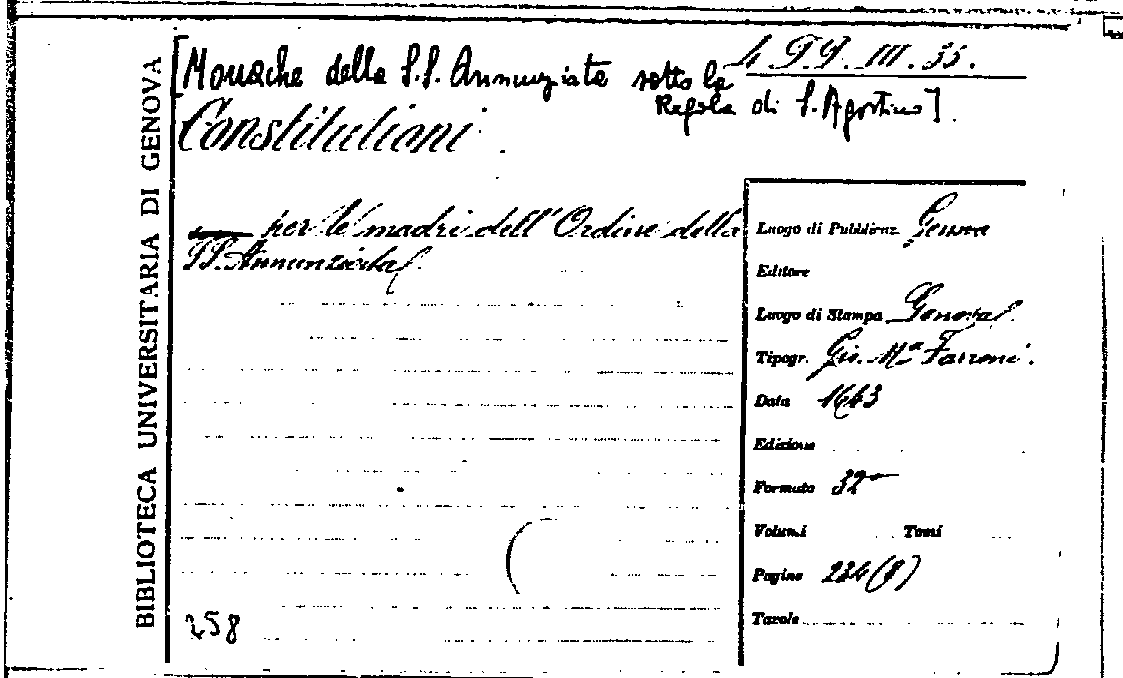 BIBLIOTECA UNIVERSITARIA DI GENOVA
[Monache della S.S. Annunziata sotto la
Regola di S. Agostino].
4 III. 35.
Constitutioni
per le madri dell'Ordine della
SS. Annunziata
Luogo di Pubblicaz. Genova
Editore
Luogo di Stampa Genova
Tipogr. Gio. Mª Farroni.
Data 1643
Edizione
Formato 32º
Volumi Tomi
Pagine 234 (8)
Tavole
258